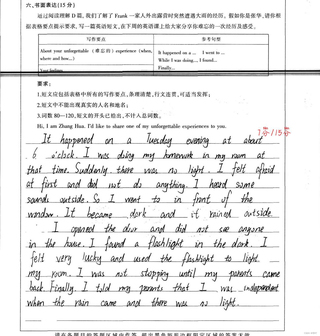 六、书面表达(15分)
通过阅读理解D篇,我们了解了Frank一家人外出露营时突然遭遇大雨的经历。假如你是张华,请你根
据表格要点提示要求,写一篇英语短文,在下周的英语课上给大家分享你难忘的一次经历及感受。
写作要点 参考句型
About your unforgettable (难忘的) experience (when, It happened on a ... I went to ...
where and how...) While I was doing..., I found...
Your feelings Finally...
要求:
1.短文应包括表格中所有的写作要点,条理清楚,行文连贯,可适当发挥;
2.短文中不能出现真实的人名和地名;
3.词数80—120,短文的开头已给出,不计入总词数。
Hi, I am Zhang Hua. I'd like to share one of my unforgettable experiences to you.
7分/15分
It happened on a Tuesday evening at about
6 o'clock. I was doing my homework in my room at
that time. Suddenly, there was no light. I felt afraid
at first and did not do anything. I heard some
sounds outside. So I went to in front of the
window. It became dark and it rained outside.
I opened the door and did not see anyone
in the house. I found a flashlight in the dark. I
felt very lucky and used the flashlight to light
my room. I was not stopping until my parents came
back. Finally, I told my parents that I was independent
when the rain came and there was no light.